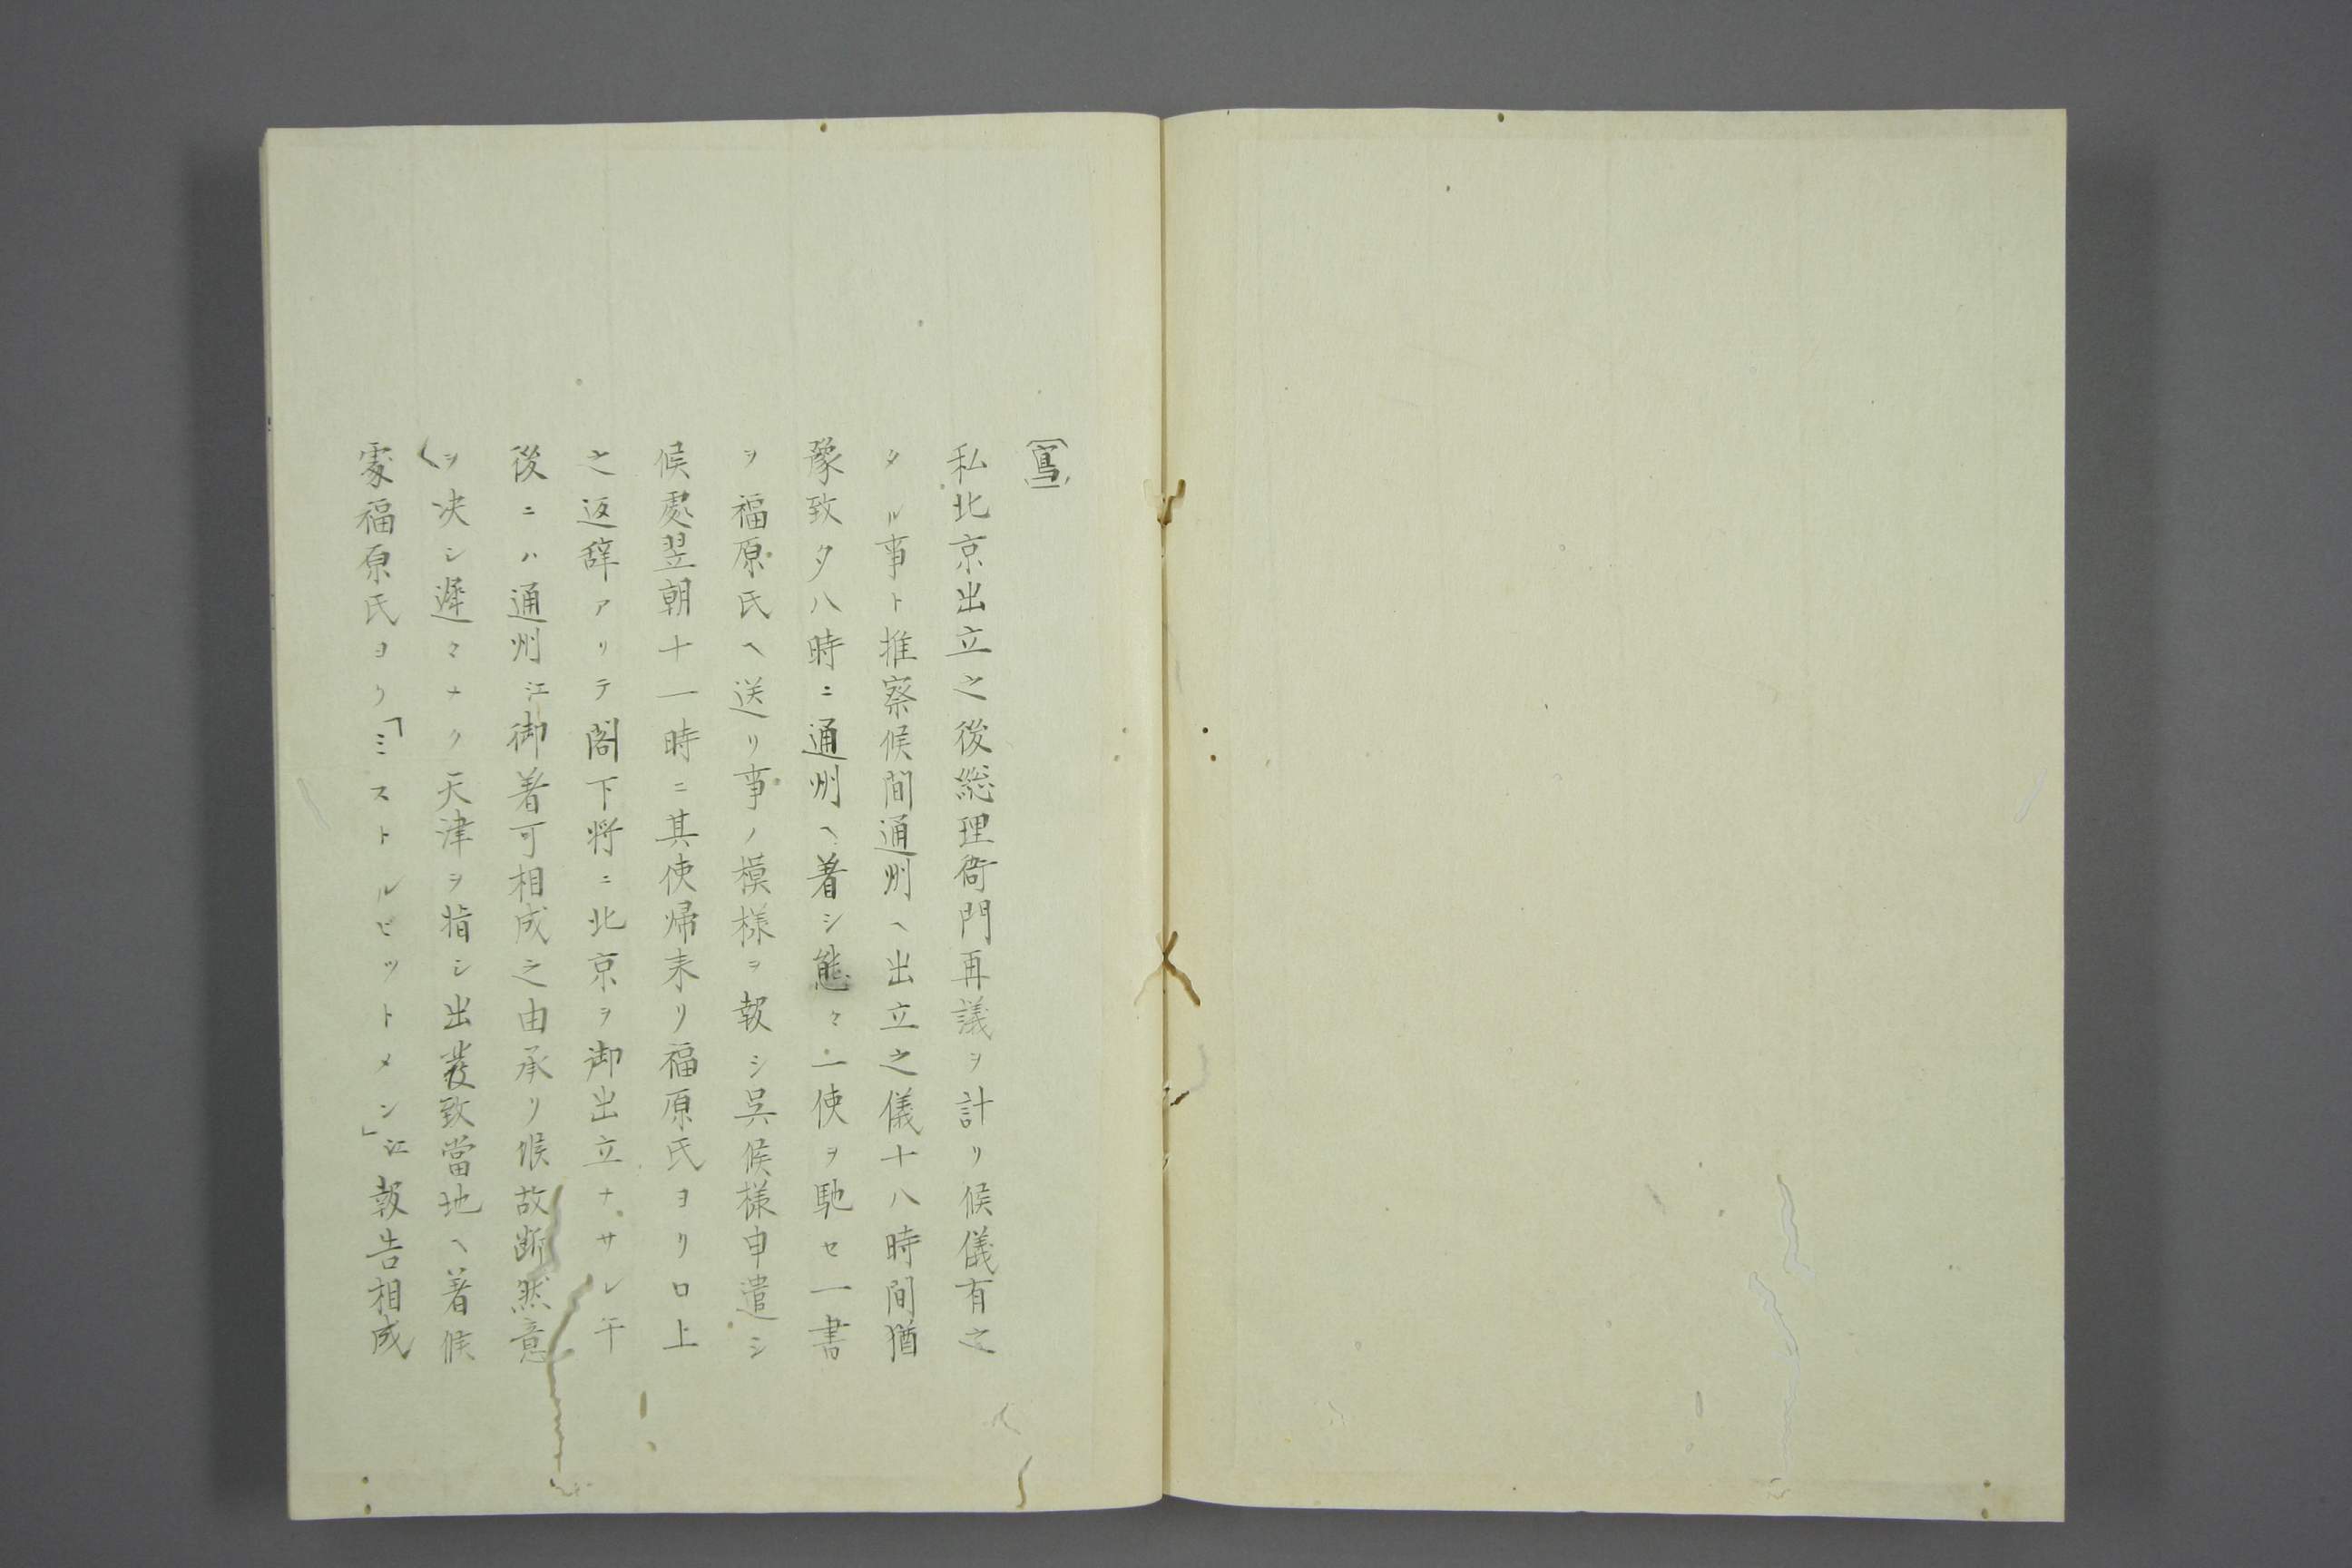 (寫)
私北京出立之後総理衙門再議ヲ計リ候儀有之
タル事ト推察候間通州ヘ出立之儀十八時間猶
豫致夕八時ニ通州ヘ着シ態々一使ヲ馳セ一書
ヲ福原氏ヘ送リ事ノ模様ヲ報シ呉候様申遣シ
候處翌朝十一時ニ其使帰来リ福原氏ヨリ口上
之返辞アリテ閣下将ニ北京ヲ御出立ナサレ午
後ニハ通州江御着可相成之由承リ候故断然意
ヲ决シ遅々ナク天津ヲ指シ出発致當地ヘ着候
處福原氏ヨリ「ミストルピットメン」江報告相成